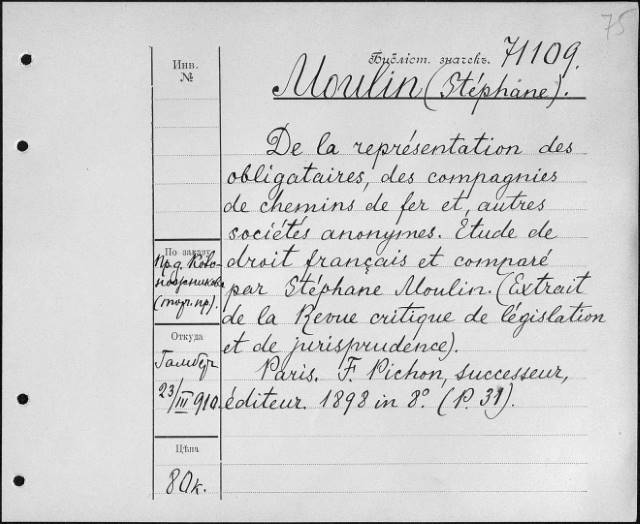 75
Библіот. значекъ. 71109.
Moulin (Stéphane).
De la représentation des
obligataires, des compagnies
de chemins de fer et, autres
sociétés anonymes. Étude de
droit français et comparé
par Stéphane Moulin. (Extrait
de la Revue critique de législation
et de jurisprudence).
Paris. F. Pichon, successeur,
éditeur. 1898 in 8º. (P. 31).
Инв.
№
По заказу
Прд.
(торг. пр).
Откуда
23/III 910.
Цѣна
80к.